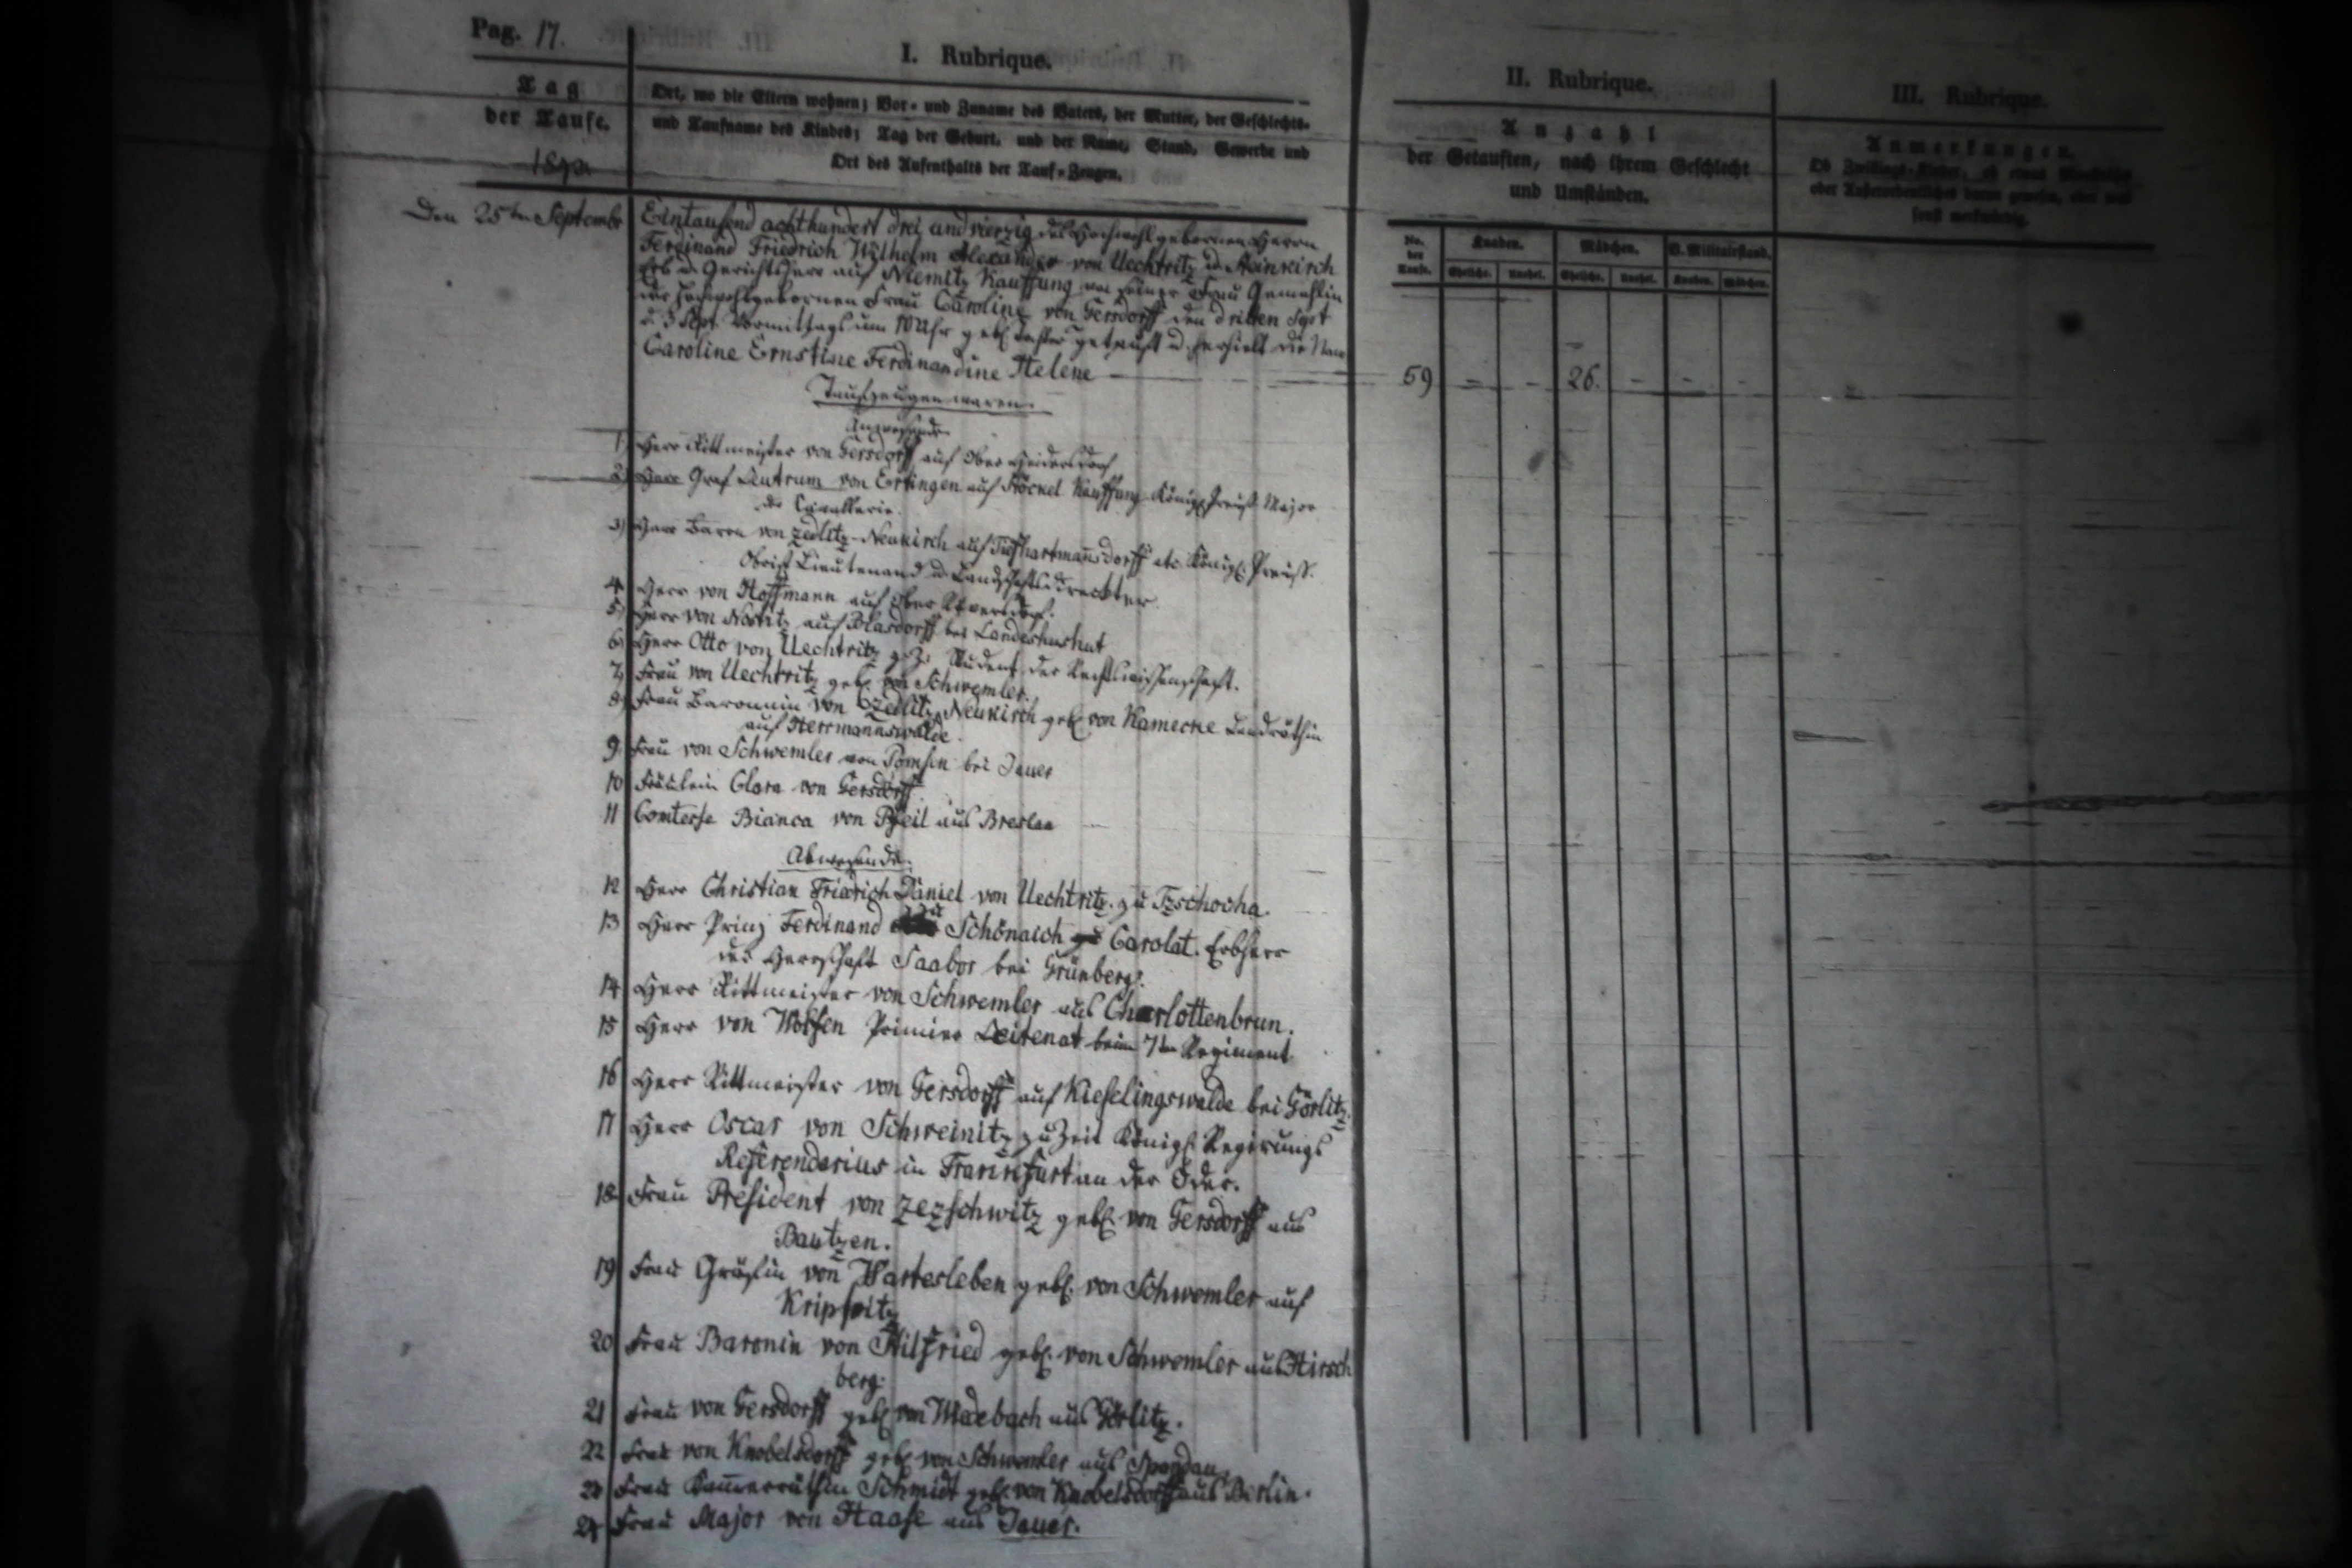 Pag. 17.
I. Rubrique.
II. Rubrique.
III. Rubrique.
Tag
der Taufe.
Ort, wo die Eltern wohnen; Vor- und Zuname des Vaters, der Mutter, der Geschlechts-
und Taufname des Kindes; Tag der Geburt, und der Name, Stand, Gewerbe und
Ort des Aufenthalts der Tauf-Zeugen.
Anzahl
der Getauften, nach ihrem Geschlecht
und Umständen.
Anmerkungen.
Ob Zwillings-Kinder, ob etwas
oder Außerordentliches daran gewesen, oder was
sonst merkwürdig.
No. der Taufe.
Knaben.
Mädchen.
V. Militairstand.
Eheliche.
Unehel.
Eheliche.
Unehel.
Knaben.
Mädchen.
Den 25ten Septembr
Eintausend achthundert drei und vierzig des Hochwohlgebornen Herrn
Ferdinand Friedrich Wilhelm Alexander von Uechtritz u. Steinkirch
Erb u. Gerichtsherr auf Niemitz Kauffung von seiner Frau Gemahlin
der Hochwohlgebornen Frau Caroline von Gersdorff den dritten Spt
d. 3 Sept. Vormittags um 10 Uhr geb. Tochter getauft u. erhielt die Nam
Caroline Ernstine Ferdinandine Helene
59 - - 26. - - -
Taufzeugen waren.
Anwesende
1 Herr Rittmeister von Gersdorff auf Ober
2) Herr Graf Leutrum von Ertingen auf Stöckel Kauffung Königl. Preuß. Major
der Cavallerie.
3) Herr Baron von Zedlitz-Neukirch auf Tiefhartmansdorff etc. Königl. Preuß.
Obrist Lieutenand u. Landschaftsdirecktter
4 Herr von Hoffmann auf Ober
5) Herr von Nostitz auf Blasdorff bei Landeshushut
6) Herr Otto von Uechtritz z. Z. Student der Rechtswissenschaft.
7) Frau von Uechtritz geb. von Schwemler.
8) Frau Baronnin von Zedlitz Neukirch geb. von Kamecke Landräthin
auf Herrmannswalde.
9. Frau von Schwemler von Pomsen bei Jauer
10 Fräulein Clara von Gersdorff
11 Comtesse Bianca von Pfeil aus Breslau
Abwesende.
12 Herr Christian Friedrich Daniel von Uechtritz zu Tzschocha.
13 Herr Prinz Ferdinand zu Schönaich Carolat. Erbherr
der Herrschaft Saabor bei Grünberg.
14 Herr Rittmeister von Schwemler aus Charlottenbrun.
15 Herr von Primier Leitenat beim 7ten Regiment
16 Herr Rittmeister von Gersdorff auf Kieselingswalde bei Görlitz.
17 Herr Oscar von Schweinitz zu Zeit Königl. Regirungs
Referendarius in Frankfurt an der Oder.
18 Frau President von Zezschwitz geb. von Gersdorff aus
Bautzen.
19 Frau Gräfin von Wartesleben geb. von Schwemler auf
Krippitz
20 Frau Baronin von Stilfried geb. von Schwemler aus Hirsch
berg.
21 Frau von Gersdorff geb. von Wiedebach aus Görlitz.
22 Frau von Knobelsdorff geb. von Schwemler aus Spandau
23 Frau Kammerräthin Schmidt geb. von Knobelsdorff aus Berlin.
24 Frau Major von Haase aus Jauer.